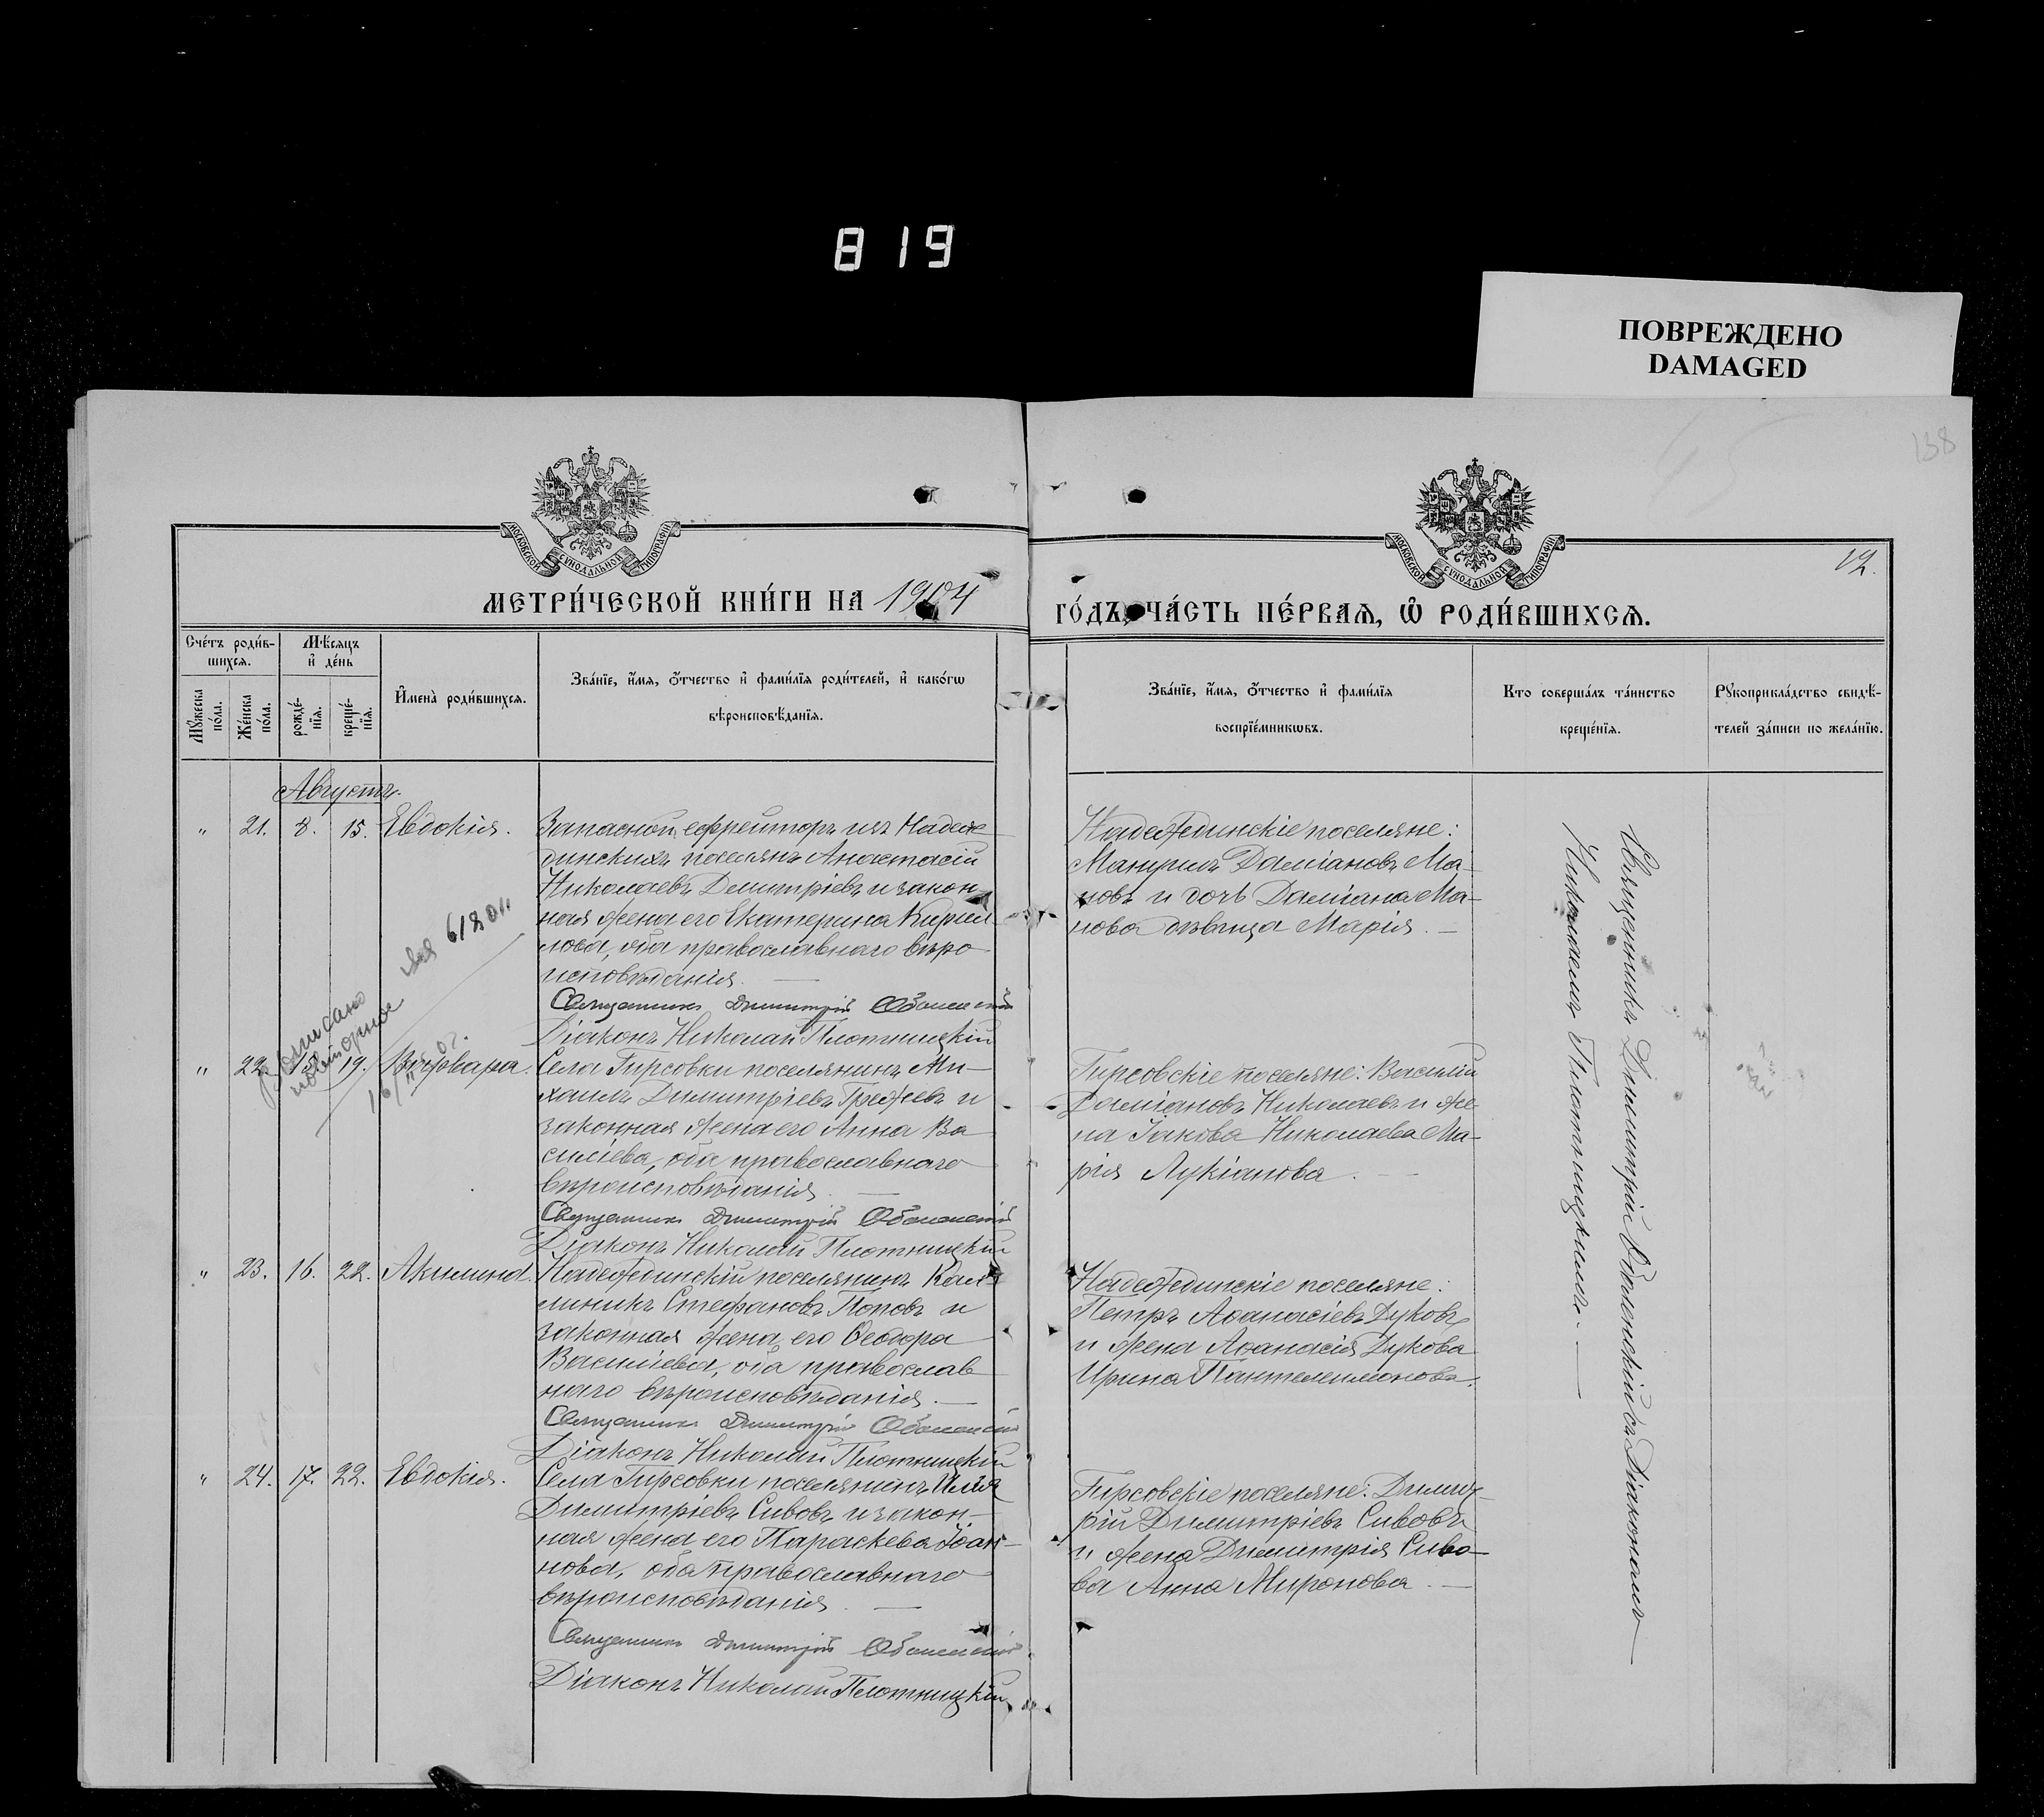 819
ПОВРЕЖДЕНО
DAMAGED
138
12.
МОСКОВСКОЙ СѴНОДАЛЬНОЙ ТИПОГРАФІИ
МОСКОВСКОЙ СѴНОДАЛЬНОЙ ТИПОГРАФІИ
МЕТРИ́ЧЕСКОЙ КНИ́ГИ НА 1904
ГО́ДЪ, ЧА́СТЬ ПЕ́РВАѦ, Ѽ РОДИ́ВШИХСѦ.
Сче́тъ роди́в-
шихсѧ.
Мѣ́сѧцъ
и҆ де́нь
Мꙋ́жеска
по́ла.
Же́нска
по́ла.
рожде́-
нїѧ.
креще́-
нїѧ.
И҆мена̀ роди́вшихсѧ.
Зва́нїе, и҆́мѧ, ѻ҆́тчество и҆ фами́лїѧ роди́телей, и҆ како́гѡ
вѣроисповѣ́данїѧ.
Зва́нїе, и҆́мѧ, ѻ҆́тчество и҆ фами́лїѧ
воспрїе́мникѡвъ.
Кто соверша́лъ та́инство
креще́нїѧ.
Рꙋкоприкла́дство свидѣ́-
телей за́писи по жела́нїю.
Августъ.
" 21. 8. 15. Евдокія.
Запасной ефрейторъ изъ Надеж
динскихъ поселянъ Анастасій
Николаевъ Димитріевъ и закон
ная жена его Екатерина Кирил
лова, оба православнаго вѣро
исповѣданія. —
Священникъ Димитрій Оболенскій
Діаконъ Николай Плотницкій
Надеждинскіе поселяне:
Мануилъ Даміановъ Ма-
новъ и дочь Даміана Ма-
нова дѣвица Марія. —
" 22. 15. 19. Варвара.
Села Гирсовки поселянинъ Ми-
хаилъ Димитріевъ Греджевъ и
законная жена его Анна Ва
силіева, оба православнаго
вѣроисповѣданія. —
Священникъ Димитрій Оболенскій
Діаконъ Николай Плотницкій
Гирсовскіе поселяне: Василій
Даміановъ Николаевъ и же-
на Іакова Николаева Ма-
рія Лукіанова. —
" 23. 16. 22. Акилина.
Надеждинскій поселянинъ Кал-
линикъ Стефановъ Поповъ и
законная жена его Ѳеодора
Василіева, оба православ
наго вѣроисповѣданія. —
Священникъ Димитрій Оболенскій
Діаконъ Николай Плотницкій
Надеждинскіе поселяне:
Петръ Аѳанасіевъ Дуковъ
и жена Аѳанасія Дукова
Ирина Пантелеимонова.
" 24. 17. 22. Евдокія.
Села Гирсовки поселянинъ Илія
Димитріевъ Сивовъ и закон-
ная жена его Параскева Іоан-
нова, оба православнаго
вѣроисповѣданія. —
Священникъ Димитрій Оболенскій
Діаконъ Николай Плотницкій
Гирсовскіе поселяне: Димит-
рій Димитріевъ Сивовъ
и жена Димитрія Сиво-
ва Анна Миронова. —
Священникъ Димитрій Оболенскій съ Діакономъ
Николаемъ Плотницкимъ. —
повторное